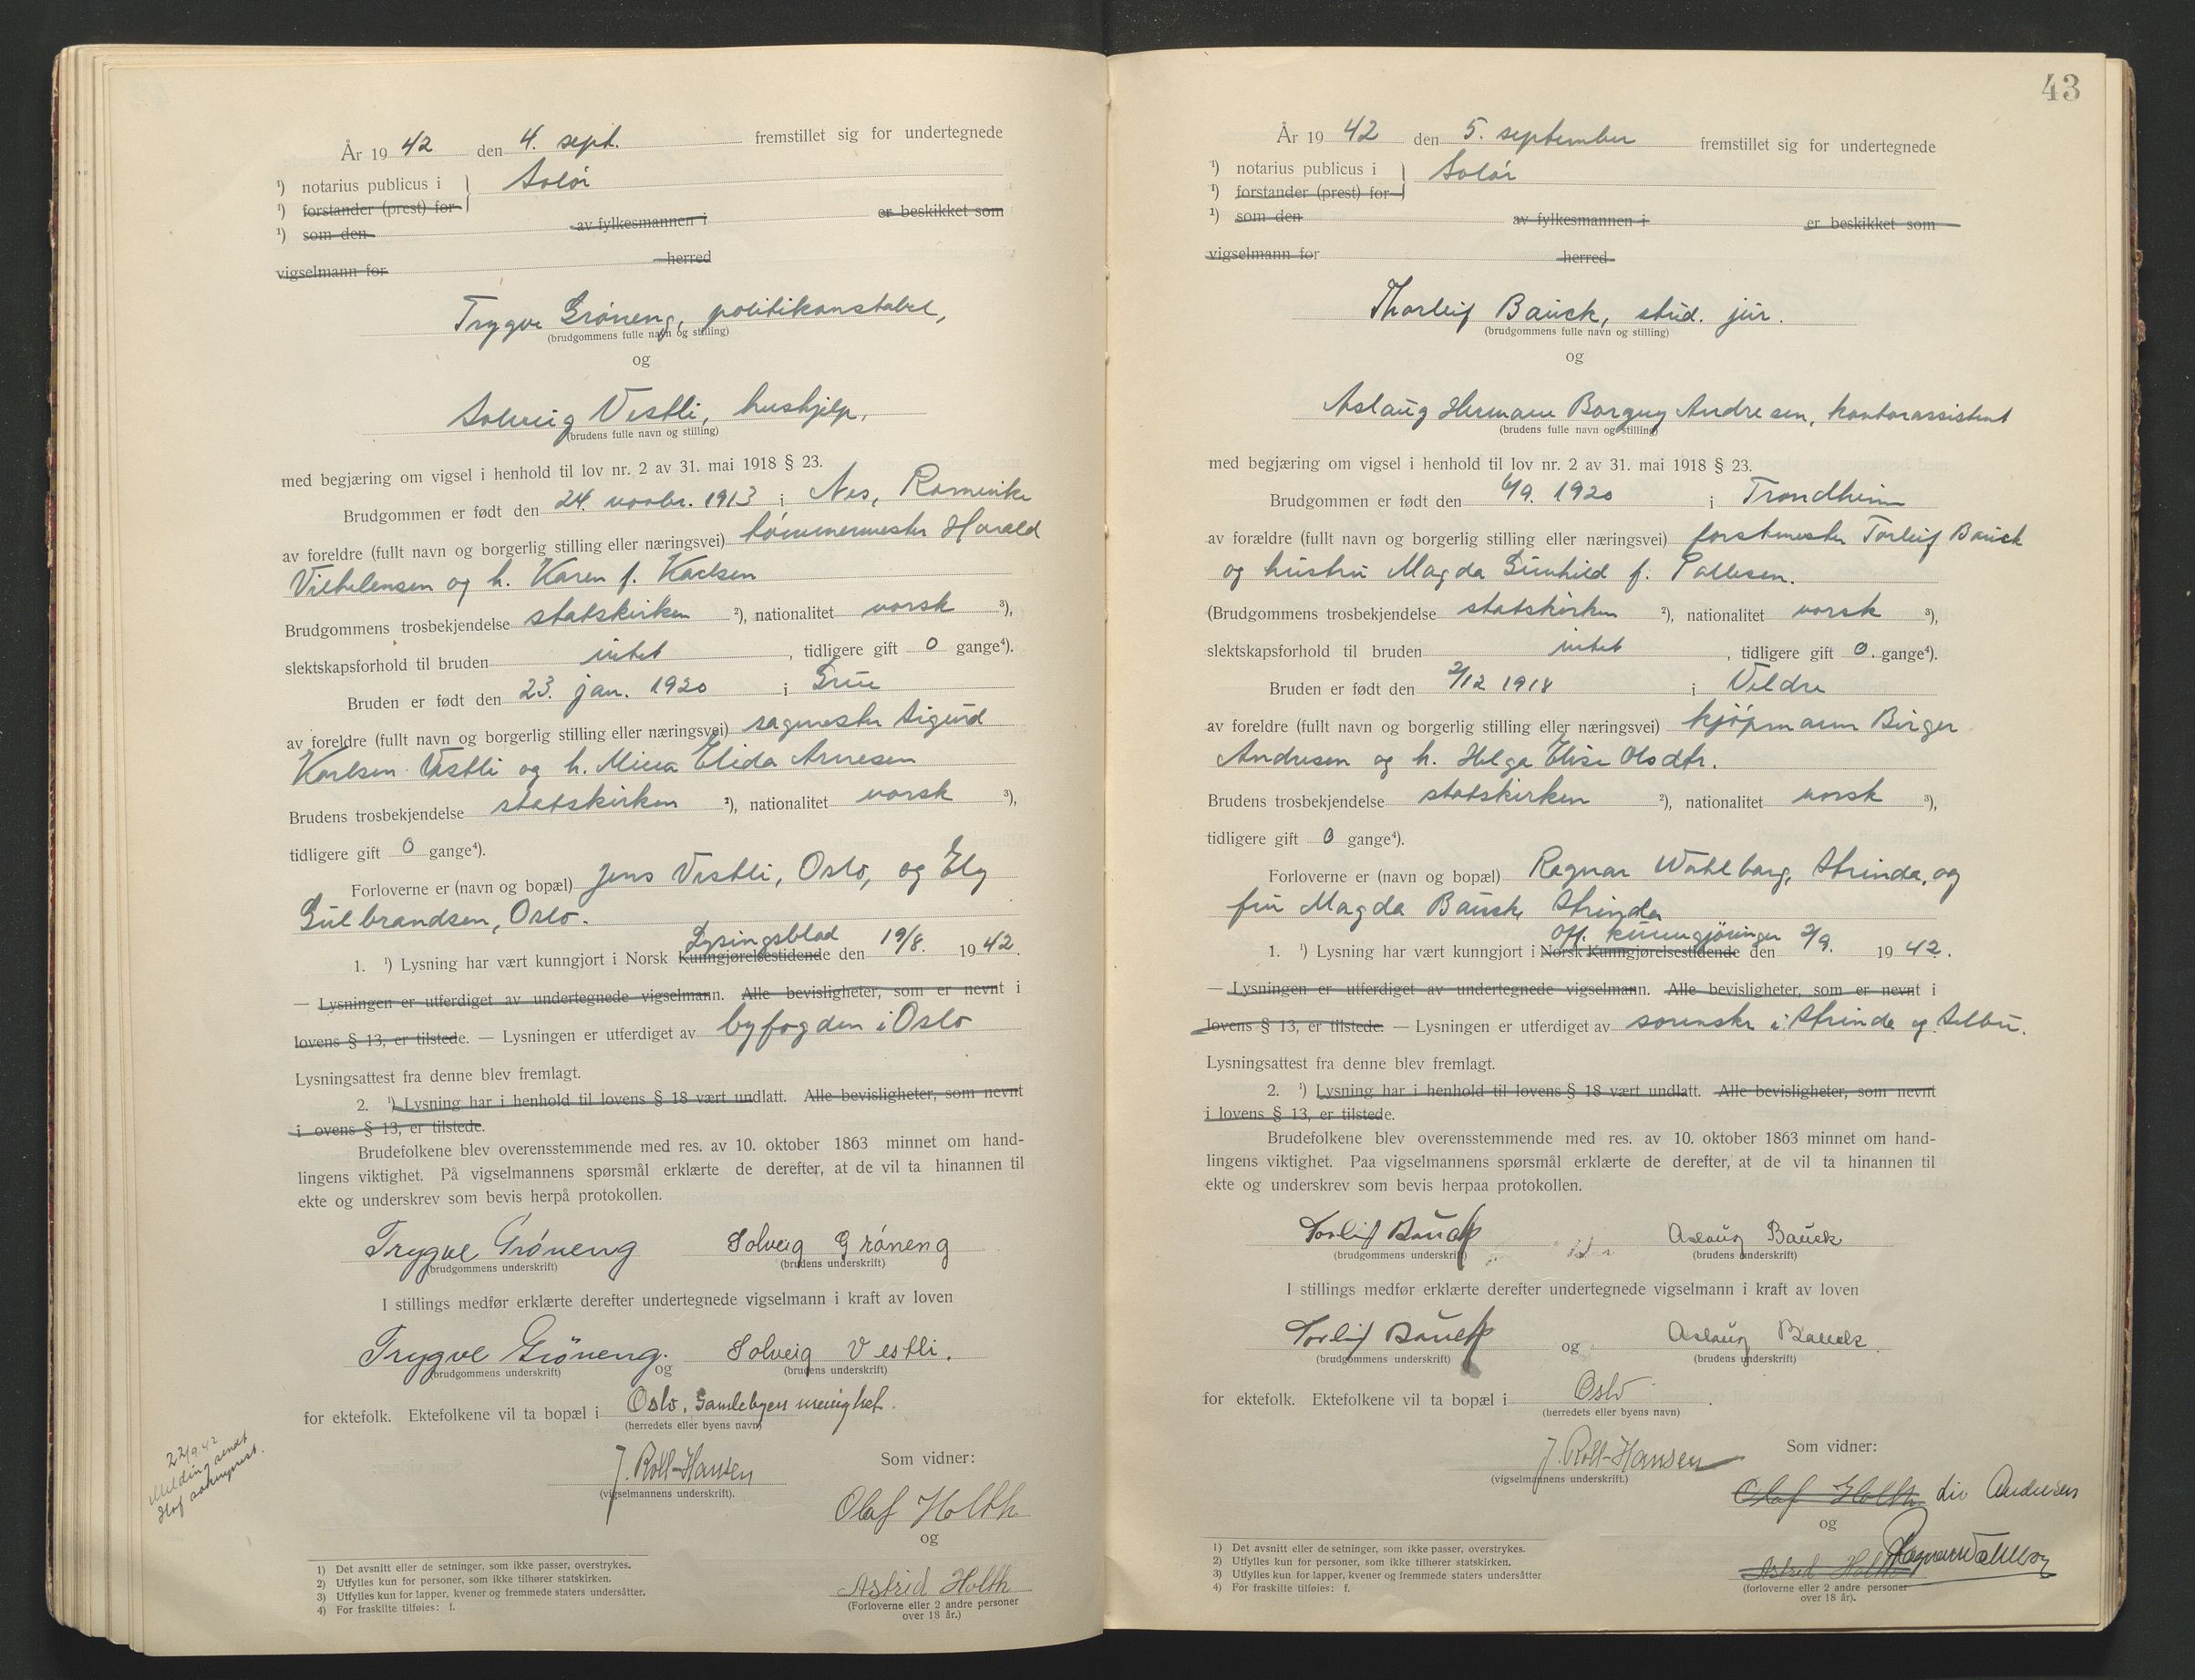 År 19 42 den 4. sept. fremstillet sig for undertegnede
¹) notarius publicus i } Solör
¹) forstander (prest) for
¹) som den av fylkesmannen i er beskikket som
vigselmann for herred
Trygve Gröneng, politikonstabel,
(brudgommens fulle navn og stilling)
og
Solveig Vestli, hushjelp,
(brudens fulle navn og stilling)
med begjæring om vigsel i henhold til lov nr. 2 av 31. mai 1918 § 23.
Brudgommen er født den 24. novbr. 1913 i Nes, Romerike
av foreldre (fullt navn og borgerlig stilling eller næringsvei) tömmermester Harald
Vilhelmsen og h. Karen f. Karlsen
Brudgommens trosbekjendelse statskirken ²), nationalitet norsk ³),
slektskapsforhold til bruden intet , tidligere gift 0 gange⁴).
Bruden er født den 23. jan. 1920 i Grue
av foreldre (fullt navn og borgerlig stilling eller næringsvei) sagmester Sigurd
Karlsen Vestli og h. Elida Arnesen
Brudens trosbekjendelse statskirken ²), nationalitet norsk ³),
tidligere gift 0 gange⁴).
Forloverne er (navn og bopæl) Jens Vestli, Oslo, og Ely
Gulbrandsen, Oslo.
Lysingsblad
1. ¹) Lysning har vært kunngjort i Norsk Kunngjørelsestidende den 19/8. 19 42.
— Lysningen er utferdiget av undertegnede vigselmann. Alle bevisligheter, som er nevnt i
lovens § 13, er tilstede. — Lysningen er utferdiget av byfogden i Oslo
Lysningsattest fra denne blev fremlagt.
2. ¹) Lysning har i henhold til lovens § 18 vært undlatt. Alle bevisligheter, som nevnt
i ovens § 13, er tilstede.
Brudefolkene blev overensstemmende med res. av 10. oktober 1863 minnet om hand-
lingens viktighet. På vigselmannens spørsmål erklærte de derefter, at de vil ta hinannen til
ekte og underskrev som bevis herpå protokollen.
Trygve Gröneng Solveig Gröneng
(brudgommens underskrift) (brudens underskrift)
I stillings medfør erklærte derefter undertegnede vigselmann i kraft av loven
Trygve Gröneng. og Solveig Vestli.
(brudgommens underskrift) (brudens underskrift)
for ektefolk. Ektefolkene vil ta bopæl i Oslo, Gamlebyen menighet.
(herredets eller byens navn)
22/9 42
Melding sendt
Hof sokneprest.
J. Roll-Hansen
(vigselmannens underskrift).
Som vidner:
Olaf Holth
og
Astrid Holth
(Forloverne eller 2 andre personer
over 18 år.)
1) Det avsnitt eller de setninger, som ikke passer, overstrykes.
2) Utfylles kun for personer, som ikke tilhører statskirken.
3) Utfylles kun for lapper, kvener og fremmede staters undersåtter.
4) For fraskilte tilføies: f.
43
År 19 42 den 5. september fremstillet sig for undertegnede
¹) notarius publicus i } Solör
¹) forstander (prest) for
¹) som den av fylkesmannen i er beskikket som
vigselmann for herred
Thorleif Bauck, stud. jur.
(brudgommens fulle navn og stilling)
og
Aslaug Hermane Borgny Andresen, kontorassistent
(brudens fulle navn og stilling)
med begjæring om vigsel i henhold til lov nr. 2 av 31. mai 1918 § 23.
Brudgommen er født den 6/9. 1920 i Trondheim
av forældre (fullt navn og borgerlig stilling eller næringsvei) forstmester Torleif Bauck
og hustru Magda Gunhild f. Pallesen.
(Brudgommens trosbekjendelse statskirken ²), nationalitet norsk ³),
slektskapsforhold til bruden intet , tidligere gift 0. gange⁴).
Bruden er født den 2/12 1918 i Veldre
av foreldre (fullt navn og borgerlig stilling eller næringsvei) kjöpmann Birger
Andresen og h. Helga Elise Olsdtr.
Brudens trosbekjendelse statskirken ²), nationalitet norsk ³),
tidligere gift 0 gange⁴).
Forloverne er (navn og bopæl) Ragnar Wahlberg, Strinda, og
fru Magda Bauck Strinda
Off. kunngjöringer
1. ¹) Lysning har vært kunngjort i Norsk Kunngjørelsestidende den 2/9. 19 42.
— Lysningen er utferdiget av undertegnede vigselmann. Alle bevisligheter, som er nevnt i
lovens § 13, er tilstede. — Lysningen er utferdiget av sorenskr i Strinda og Selbu.
Lysningsattest fra denne blev fremlagt.
2. ¹) Lysning har i henhold til lovens § 18 vært undlatt. Alle bevisligheter, som nevnt
i lovens § 13, er tilstede.
Brudefolkene blev overensstemmende med res. av 10. oktober 1863 minnet om hand-
lingens viktighet. Paa vigselmannens spørsmål erklærte de derefter, at de vil ta hinannen til
ekte og underskrev som bevis herpaa protokollen.
Torleif Bauck Aslaug Bauck
(brudgommens underskrift) (brudens underskrift)
I stillings medfør erklærte derefter undertegnede vigselmann i kraft av loven
Torleif Bauck og Aslaug Bauck
(brudgommens underskrift) (brudens underskrift)
for ektefolk. Ektefolkene vil ta bopæl i Oslo.
(herredets eller byens navn)
J. Roll-Hansen
(vigselmannens underskrift.)
Som vidner:
Olaf Holth Andresen
og
Astrid Holth Ragnar Wahlberg
(forloverne eller 2 andre personer
over 18 år).
1) Det avsnitt eller de setninger, som ikke passer, overstrykes.
2) Utfylles kun for personer, som ikke tilhører statskirken.
3) Utfylles kun for lapper, kvener og fremmede staters undersåtter
4) For fraskilte tilføies: f.